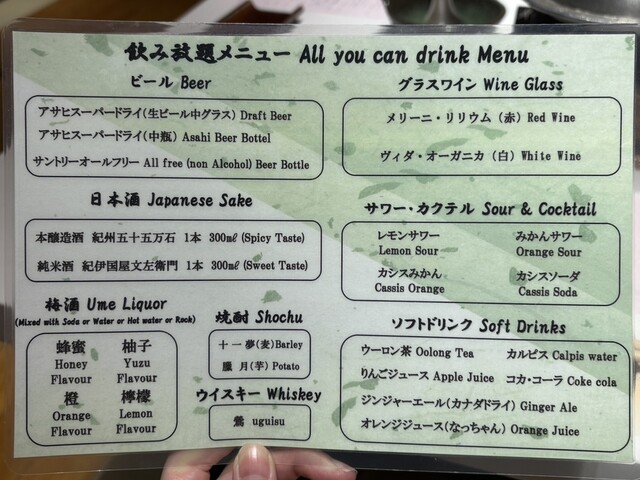 飲み放題メニュー All you can drink Menu
ビール Beer
アサヒスーパードライ(生ビール中グラス) Draft Beer
アサヒスーパードライ(中瓶) Asahi Beer Bottel
サントリーオールフリー All free (non Alcohol) Beer Bottle
グラスワイン Wine Glass
メリーニ・リリウム (赤) Red Wine
ヴィダ・オーガニカ (白) White Wine
日本酒 Japanese Sake
本醸造酒 紀州五十五万石 1本 300㎖ (Spicy Taste)
純米酒 紀伊国屋文左衛門 1本 300㎖ (Sweet Taste)
サワー・カクテル Sour & Cocktail
レモンサワー みかんサワー
Lemon Sour Orange Sour
カシスみかん カシスソーダ
Cassis Orange Cassis Soda
梅酒 Ume Liquor
(Mixed with Soda or Water or Hot water or Rock)
蜂蜜 柚子
Honey Yuzu
Flavour Flavour
橙 檸檬
Orange Lemon
Flavour Flavour
焼酎 Shochu
十一夢(麦)Barley
朧月(芋) Potato
ウイスキー Whiskey
鶯 uguisu
ソフトドリンク Soft Drinks
ウーロン茶 Oolong Tea カルピス Calpis water
りんごジュース Apple Juice コカ・コーラ Coke cola
ジンジャーエール(カナダドライ) Ginger Ale
オレンジジュース(なっちゃん) Orange Juice